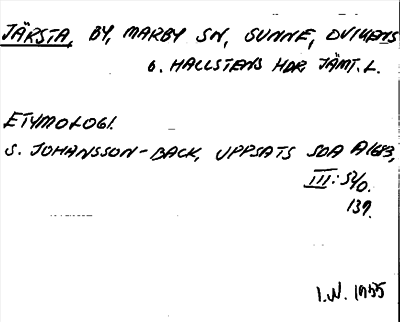 JÄRSTA, BY, MARBY SN, SUNNE, OVIKENS
O. HALLSTENS HDR JÄMT. L.
ETYMOLOGI.
S. JOHANSSON-BACK, UPPSATS SOA A1683,
III: 5/0.
139.
I.W. 1955